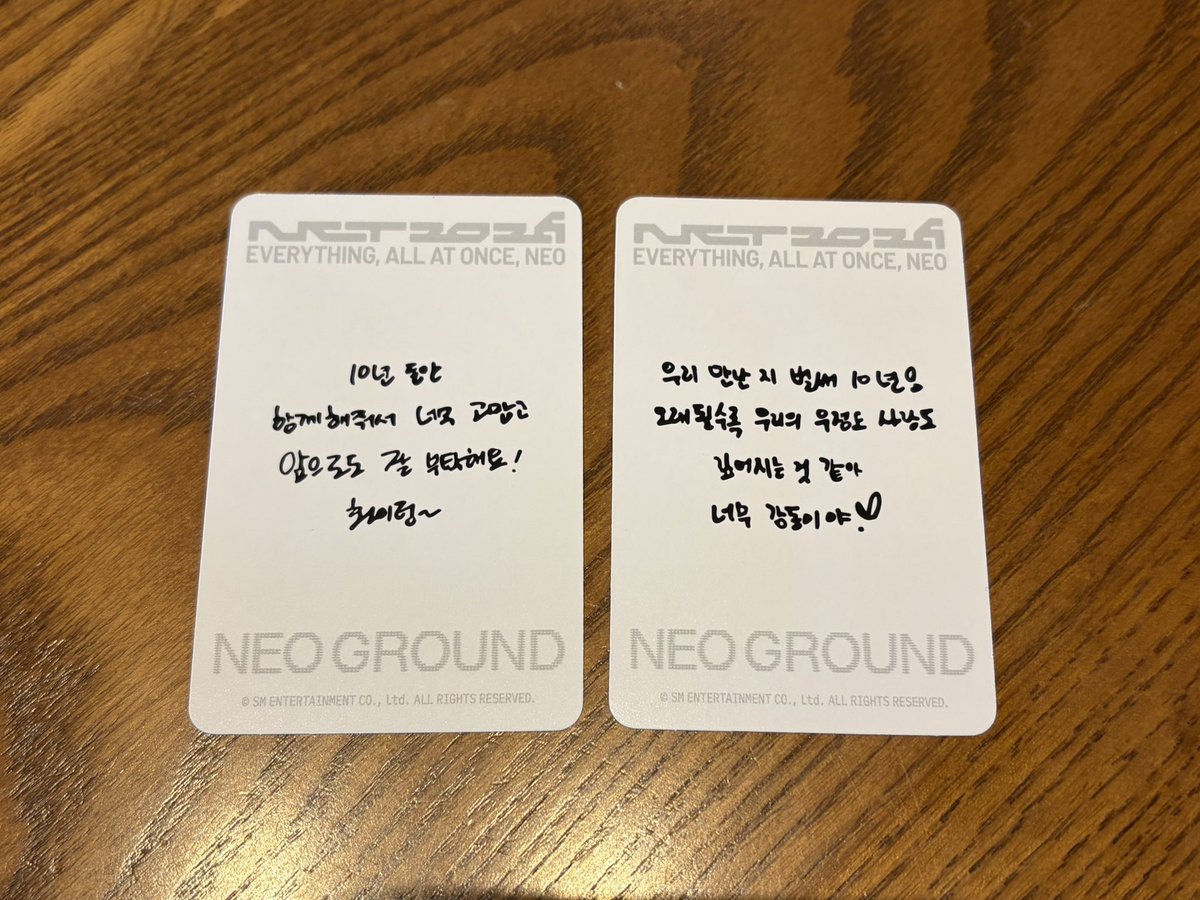 NCT 2026
EVERYTHING, ALL AT ONCE, NEO
10년 동안
함께해줘서 너무 고맙고
앞으로도 잘 부탁해요!
화이팅~
NEO GROUND
© SM ENTERTAINMENT CO., Ltd. ALL RIGHTS RESERVED.
NCT 2026
EVERYTHING, ALL AT ONCE, NEO
우리 만난 지 벌써
오래될수록 우리의 우정도 사랑도
깊어지는 것 같아
너무 감동이야
NEO GROUND
© SM ENTERTAINMENT CO., Ltd. ALL RIGHTS RESERVED.